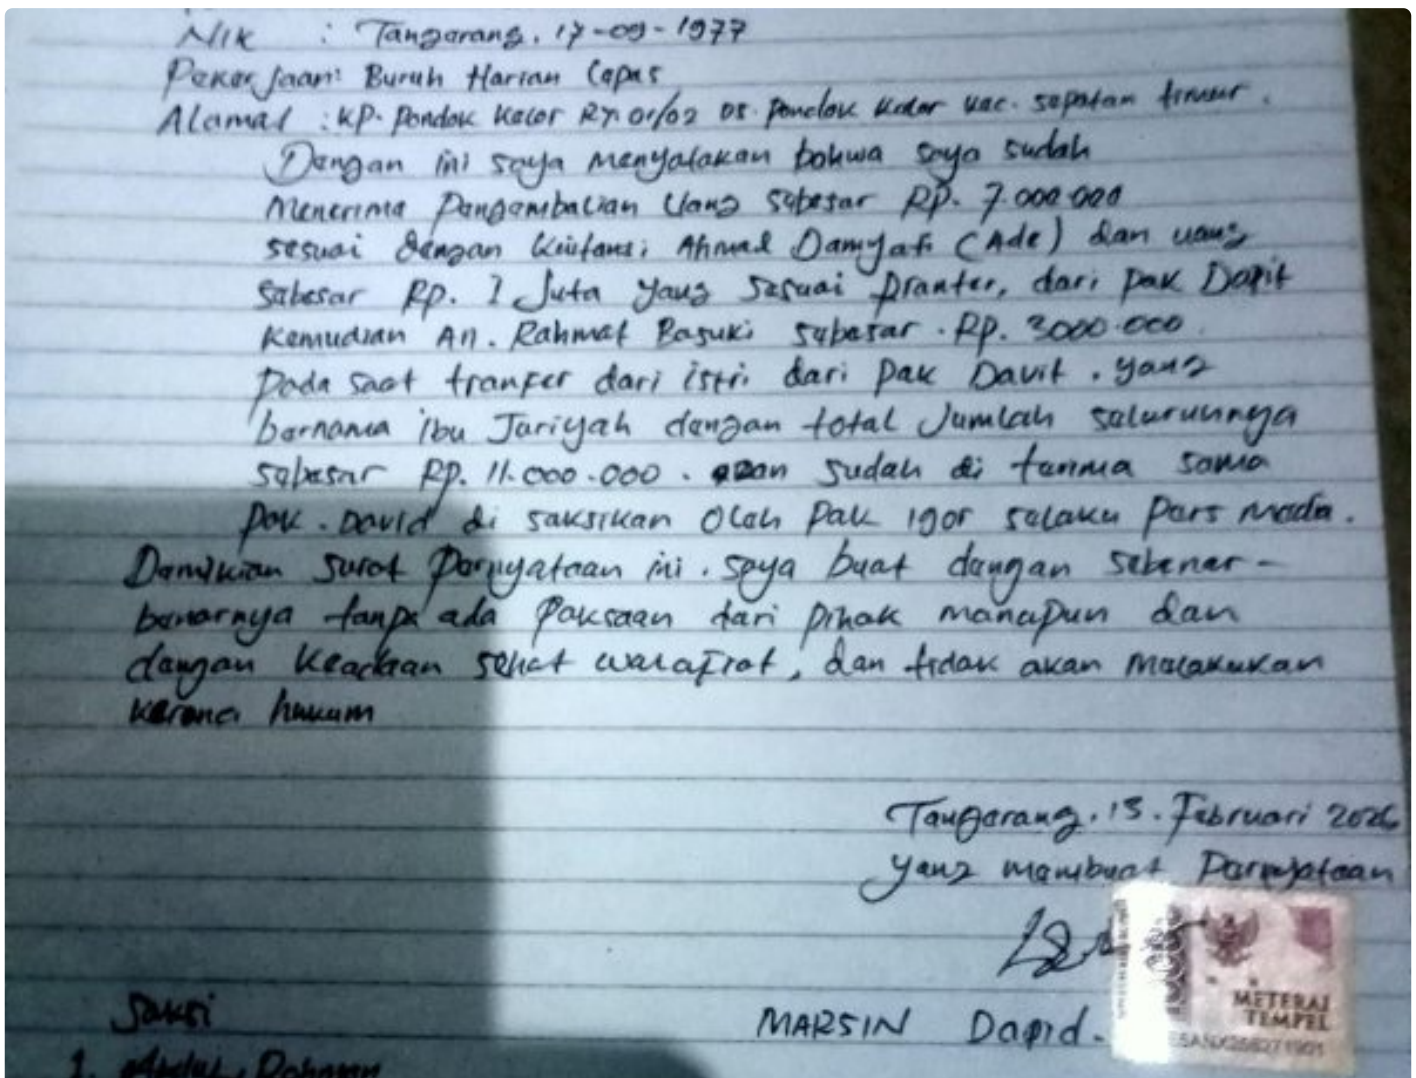 NIK : Tangerang. 17-09-1977
Pekerjaan: Buruh Harian Lepas
Alamat : KP. Pondok Kelor RT. 01/02 DS. Pondok Kelor Kec. Sepatan timur.
Dengan ini saya Menyatakan bahwa saya sudah
Menerima Pengembalian Uang sebesar RP. 7.000.000
sesuai dengan Kwitansi Ahmad Damyati (Ade) dan uang
sebesar RP. 1 Juta yang sesuai Tranfer, dari pak Dapit
Kemudian An. Rahmat Basuki sebesar. RP. 3000.000.
Pada saat tranfer dari istri dari Pak Davit. yang
bernama ibu Jariyah dengan total Jumlah seluruhnya
sebesar RP. 11.000.000. sudah di terima sama
pak. David di saksikan Oleh Pak Igor selaku Pers Media.
Demikian Surat Pernyataan ini. saya buat dengan sebenar-
benarnya tanpa ada Paksaan dari pihak manapun dan
dengan Keadaan sehat walafiat, dan tidak akan Melakukan
Karena hukum
Tangerang. 15. Februari 2026
yang membuat Pernyataan
METERAI
TEMPEL
MARSIN Dapid.
Saksi
1.